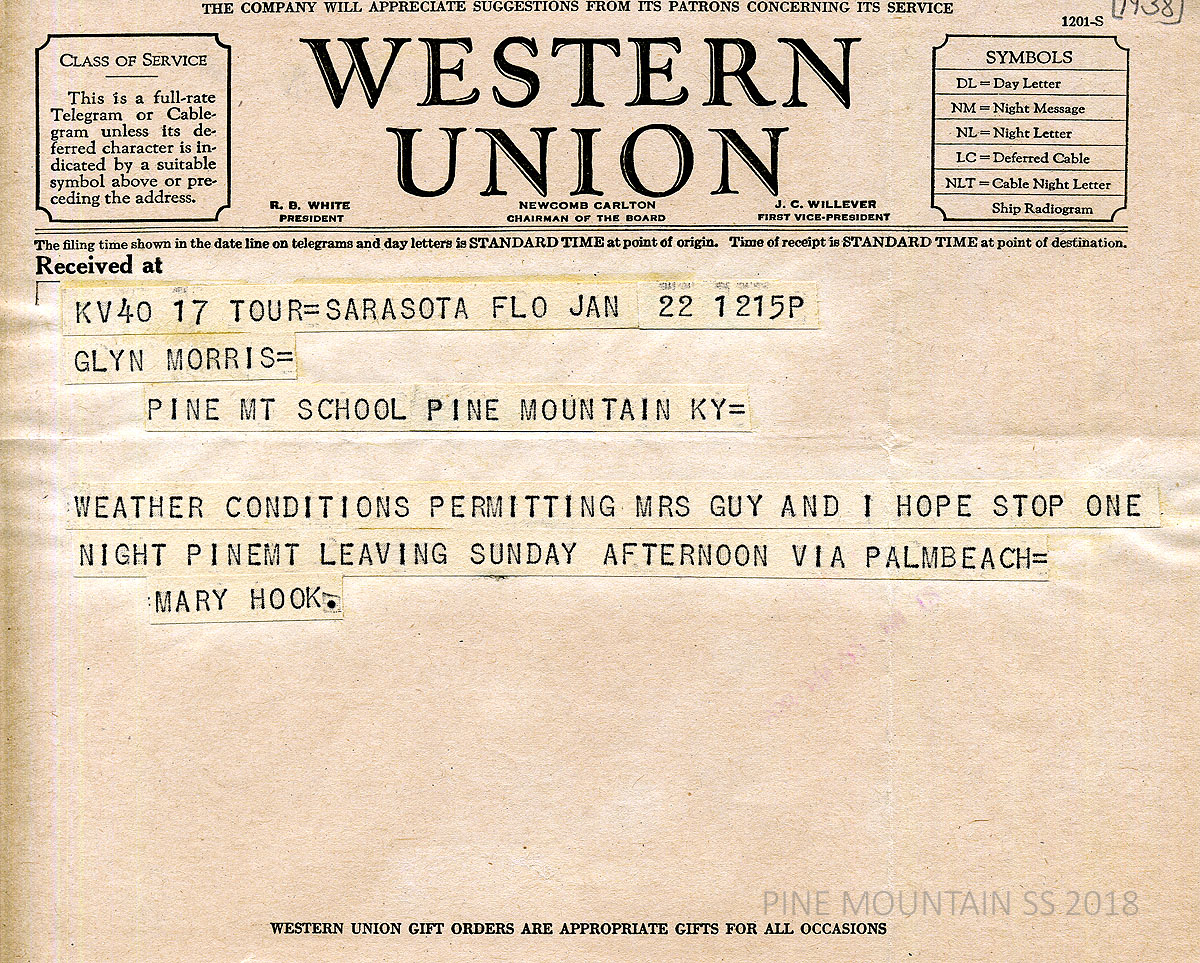 THE COMPANY WILL APPRECIATE SUGGESTIONS FROM ITS PATRONS CONCERNING ITS SERVICE
[1938]
1201-S
CLASS OF SERVICE
This is a full-rate
Telegram or Cable-
gram unless its de-
ferred character is in-
dicated by a suitable
symbol above or pre-
ceding the address.
WESTERN
UNION
R. B. WHITE
PRESIDENT
NEWCOMB CARLTON
CHAIRMAN OF THE BOARD
J. C. WILLEVER
FIRST VICE-PRESIDENT
SYMBOLS
DL = Day Letter
NM = Night Message
NL = Night Letter
LC = Deferred Cable
NLT = Cable Night Letter
Ship Radiogram
The filing time shown in the date line on telegrams and day letters is STANDARD TIME at point of origin. Time of receipt is STANDARD TIME at point of destination.
Received at
KV40 17 TOUR=SARASOTA FLO JAN 22 1215P
GLYN MORRIS=
PINE MT SCHOOL PINE MOUNTAIN KY=
:WEATHER CONDITIONS PERMITTING MRS GUY AND I HOPE STOP ONE
NIGHT PINEMT LEAVING SUNDAY AFTERNOON VIA PALMBEACH=
:MARY HOOK.
PINE MOUNTAIN SS 2018
WESTERN UNION GIFT ORDERS ARE APPROPRIATE GIFTS FOR ALL OCCASIONS